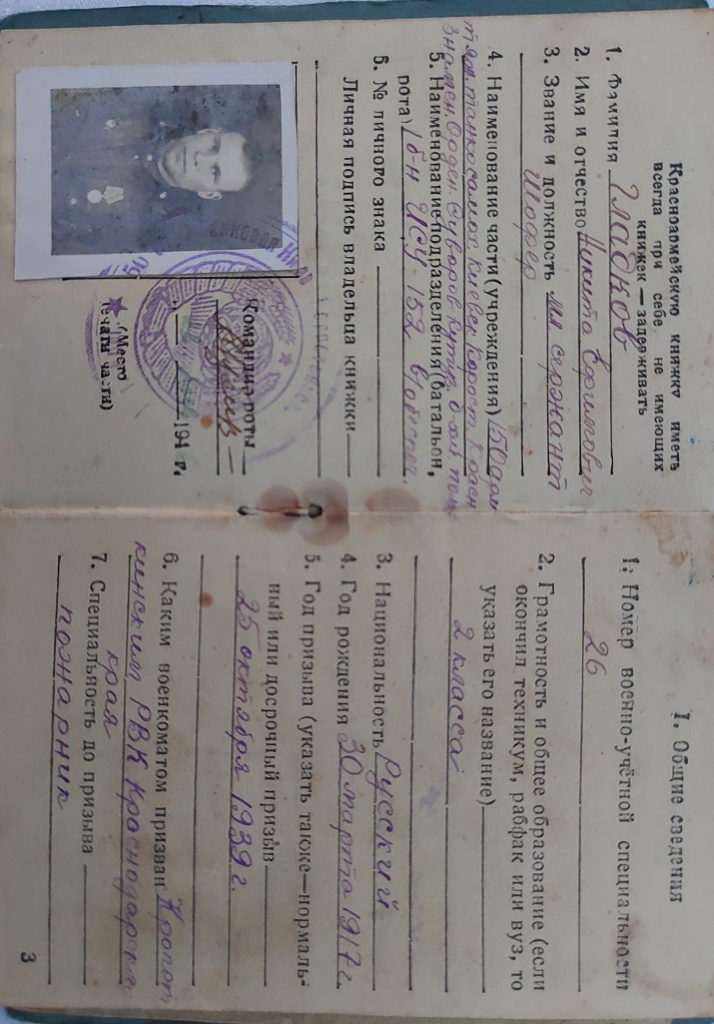 Красноармейскую книжку иметь
всегда при себе не имеющих
книжек — задерживать
1. Фамилия Гладков
2. Имя и отчество Никита Ефимович
3. Звание и должность мл сержант
Шофер
4. Наименование части (учреждения) 150 арм
тяж. танкосамох Киевск Корост. Красн
Знамен. Орден. Суворов Кутуз.
5. Наименование подразделения (батальон,
рота) 1 б-н ИСУ-152
6. № личного знака
Личная подпись владельца книжки
Командир роты
194 г.
(Место
печати части)
I. Общие сведения
1. Номер военно-учётной специальности
26
2. Грамотность и общее образование (если
окончил техникум, рабфак или вуз, то
указать его название)
2 класса
3. Национальность Русский
4. Год рождения 30 марта 1917 г.
5. Год призыва (указать также—нормаль-
ный или досрочный призыв
25 октября 1939 г.
6. Каким военкоматом призван Кропот
кинским РВК Краснодарска
края
7. Специальность до призыва
пожарник
3